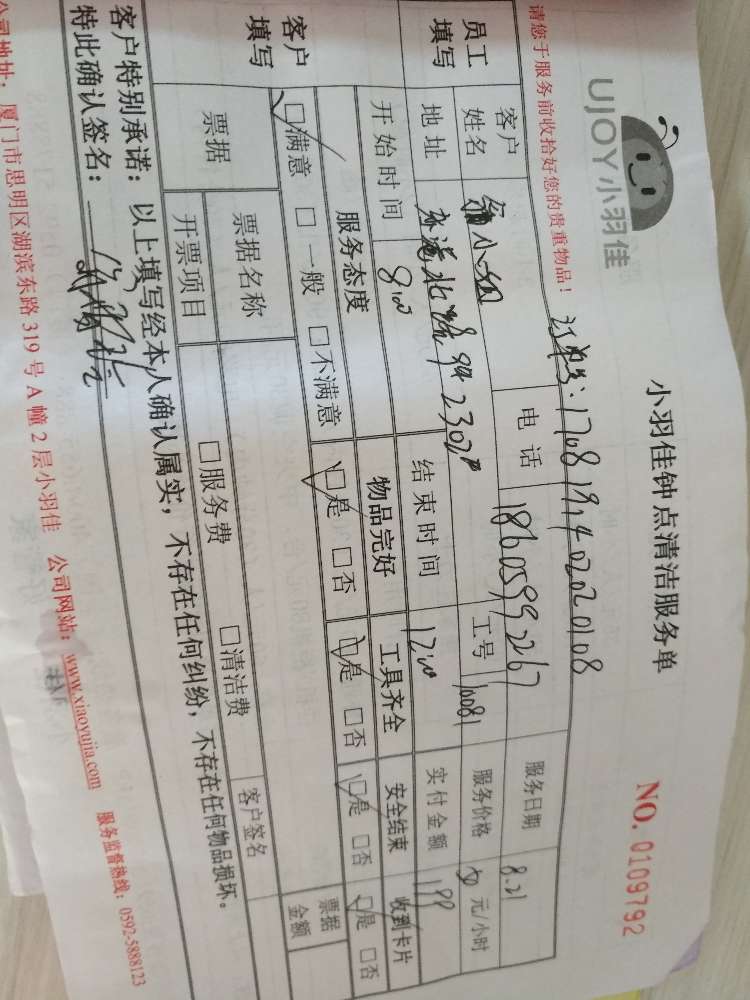 UJOY小羽佳
小羽佳钟点清洁服务单
NO. 0109792
请您于服务前收拾好您的贵重物品！
订单号：17081919402020108
员工填写
客户姓名 小姐 电话 18605992267 服务日期 8.21
地址 北 94 2302# 工号 10081 服务价格 50 元/小时
开始时间 8:00 结束时间 12:00 实付金额 199
客户填写
服务态度 物品完好 工具齐全 安全结束 收到卡片
☑满意 □一般 □不满意 ☑是 □否 ☑是 □否 ☑是 □否 ☑是 □否
票据 票据名称 □服务费 □清洁费 客户签名 票据金额
开票项目
客户特别承诺：以上填写经本人确认属实，不存在任何纠纷，不存在任何物品损坏。
特此确认签名：
公司地址：厦门市思明区湖滨东路319号A幢2层小羽佳 公司网站：www.xiaoyujia.com 服务监督热线：0592-5888123